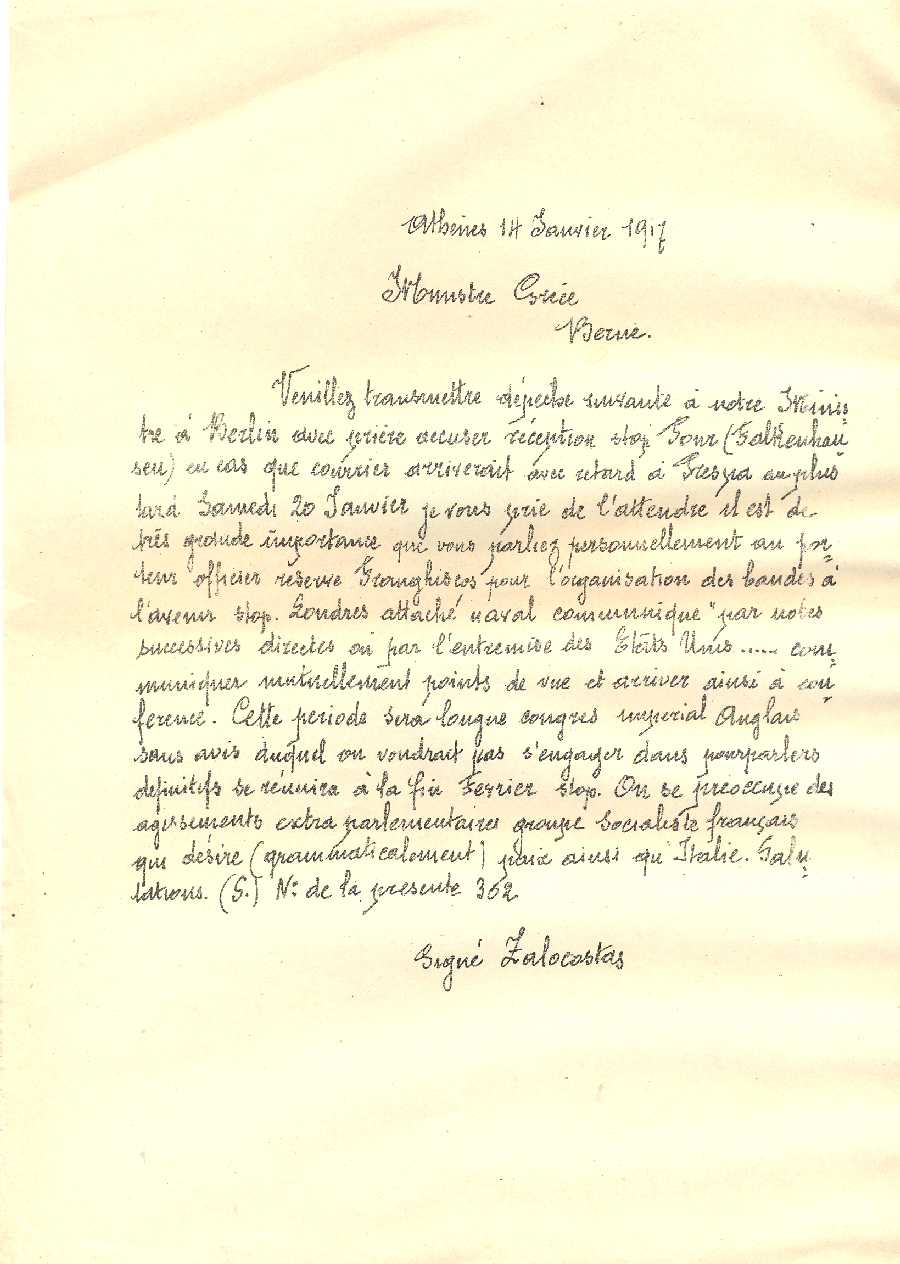 Athènes 14 Janvier 1917
Ministre Grèce
Berne.
Veuillez transmettre dépeche suivante à notre Minis-
tre à Berlin avec prière accuser réception stop Pour (Falkenhau-
sen) en cas que courrier arriverait avec retard à Prespa au plus
tard Samedi 20 Janvier je vous prie de l'attendre il est de
très grande importance que vous parliez personnellement au por-
teur officier réserve Franghiscos pour l'organisation des bandes à
l'avenir stop. Londres attaché naval communique "par notes
successives directes ou par l'entremise des Etats Unis ..... com-
muniquer mutuellement points de vue et arriver ainsi à con-
ference. Cette periode sera longue congres imperial Anglais
sans avis duquel on voudrait pas s'engager dans pourparlers
definitifs se réunira à la fin Fevrier stop. On se préoccupe des
agissements extra parlementaires groupe Socialiste français
qui désire (grammaticalement) paix ainsi qu'Italie. Salu-
tations. (S.) No de la presente 362
Signé Zalocostas